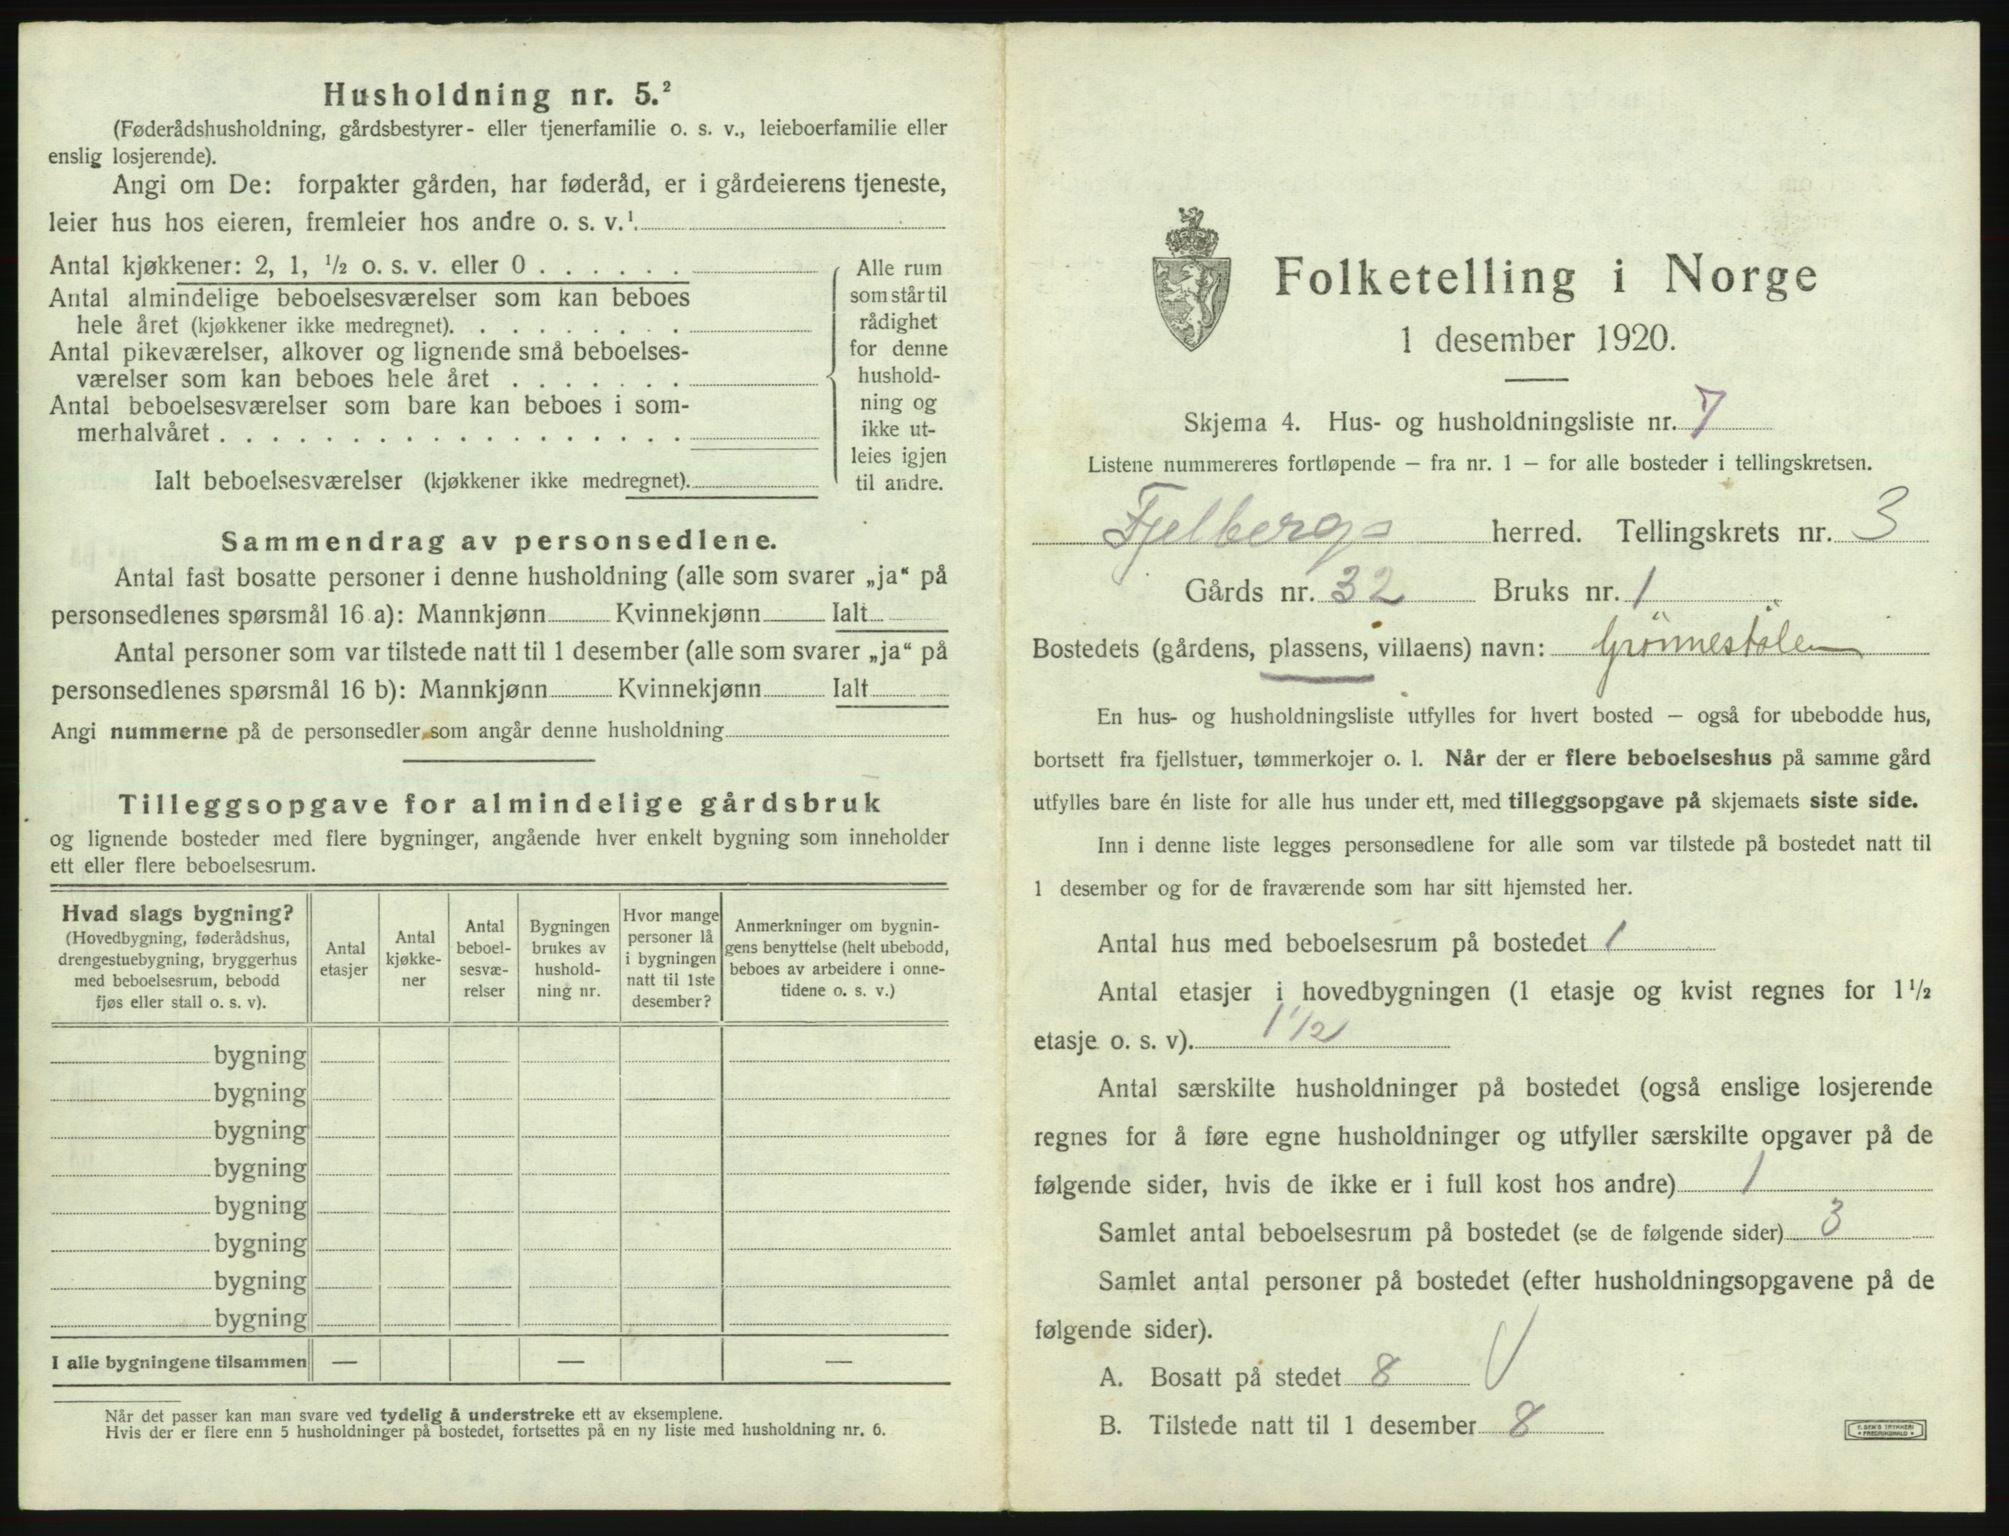 Husholdning nr. 5.²
(Føderådshusholdning, gårdsbestyrer- eller tjenerfamilie o. s. v., leieboerfamilie eller
enslig losjerende).
Angi om De: forpakter gården, har føderåd, er i gårdeierens tjeneste,
leier hus hos eieren, fremleier hos andre o. s. v.¹
Antal kjøkkener: 2, 1, ½ o. s. v. eller 0 . . . . . .
Antal almindelige beboelsesværelser som kan beboes
hele året (kjøkkener ikke medregnet). . . . . . . . .
Antal pikeværelser, alkover og lignende små beboelses-
værelser som kan beboes hele året . . . . . . .
Antal beboelsesværelser som bare kan beboes i som-
merhalvåret . . . . . . . . . . . . . . . . . .
Ialt beboelsesværelser (kjøkkener ikke medregnet).
Alle rum
som står til
rådighet
for denne
hushold-
ning og
ikke ut-
leies igjen
til andre.
Sammendrag av personsedlene.
Antal fast bosatte personer i denne husholdning (alle som svarer „ja“ på
personsedlenes spørsmål 16 a): Mannkjønn Kvinnekjønn Ialt
Antal personer som var tilstede natt til 1 desember (alle som svarer „ja“ på
personsedlenes spørsmål 16 b): Mannkjønn Kvinnekjønn Ialt
Angi nummerne på de personsedler som angår denne husholdning
Tilleggsopgave for almindelige gårdsbruk
og lignende bosteder med flere bygninger, angående hver enkelt bygning som inneholder
ett eller flere beboelsesrum.
Hvad slags bygning?
(Hovedbygning, føderådshus,
drengestuebygning, bryggerhus
med beboelsesrum, bebodd
fjøs eller stall o. s. v).
Antal
etasjer
Antal
kjøkke-
ner
Antal
beboel-
sesvæ-
relser
Bygningen
brukes av
hushold-
ning nr.
Hvor mange
personer lå
i bygningen
natt til 1ste
desember?
Anmerkninger om bygnin-
gens benyttelse (helt ubebodd,
beboes av arbeidere i onne-
tidene o. s. v.)
bygning
bygning
bygning
bygning
bygning
bygning
bygning
bygning
I alle bygningene tilsammen — — —
Når det passer kan man svare ved tydelig å understreke ett av eksemplene.
Hvis der er flere enn 5 husholdninger på bostedet, fortsettes på en ny liste med husholdning nr. 6.
Folketelling i Norge
1 desember 1920.
Skjema 4. Hus- og husholdningsliste nr. 7
Listene nummereres fortløpende – fra nr. 1 – for alle bosteder i tellingskretsen.
Fjelbergs herred. Tellingskrets nr. 3
Gårds nr. 32 Bruks nr. 1
Bostedets (gårdens, plassens, villaens) navn: Grönnestölen
En hus- og husholdningsliste utfylles for hvert bosted – også for ubebodde hus,
bortsett fra fjellstuer, tømmerkojer o. l. Når der er flere beboelseshus på samme gård
utfylles bare én liste for alle hus under ett, med tilleggsopgave på skjemaets siste side.
Inn i denne liste legges personsedlene for alle som var tilstede på bostedet natt til
1 desember og for de fraværende som har sitt hjemsted her.
Antal hus med beboelsesrum på bostedet 1
Antal etasjer i hovedbygningen (1 etasje og kvist regnes for 1½
etasje o. s. v). 1 1/2
Antal særskilte husholdninger på bostedet (også enslige losjerende
regnes for å føre egne husholdninger og utfyller særskilte opgaver på de
følgende sider, hvis de ikke er i full kost hos andre) 1
Samlet antal beboelsesrum på bostedet (se de følgende sider) 3
Samlet antal personer på bostedet (efter husholdningsopgavene på de
følgende sider).
A. Bosatt på stedet 8
B. Tilstede natt til 1 desember 8